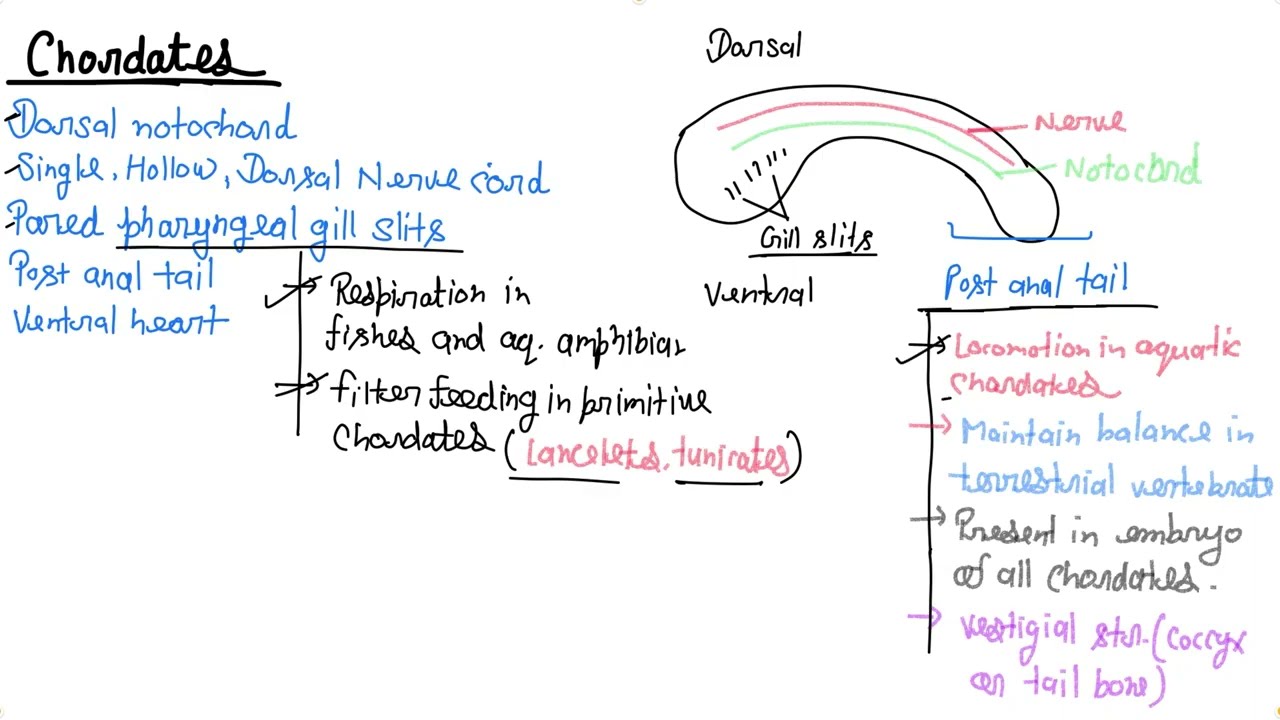 Chordates
Dorsal notochord
Single, Hollow, Dorsal Nerve cord
Pared pharyngeal gill slits
Post anal tail
Ventral heart
Respiration in
fishes and aq. amphibian
filter feeding in primitive
chordates (Lancelets, tunicates)
Dorsal
Nerve
Notocord
Gill slits
Ventral
Post anal tail
Locomotion in aquatic
chordates
Maintain balance in
terrestrial vertebrate
Present in embryo
of all chordates.
Vestigial str. (Coccyx
or tail bone)